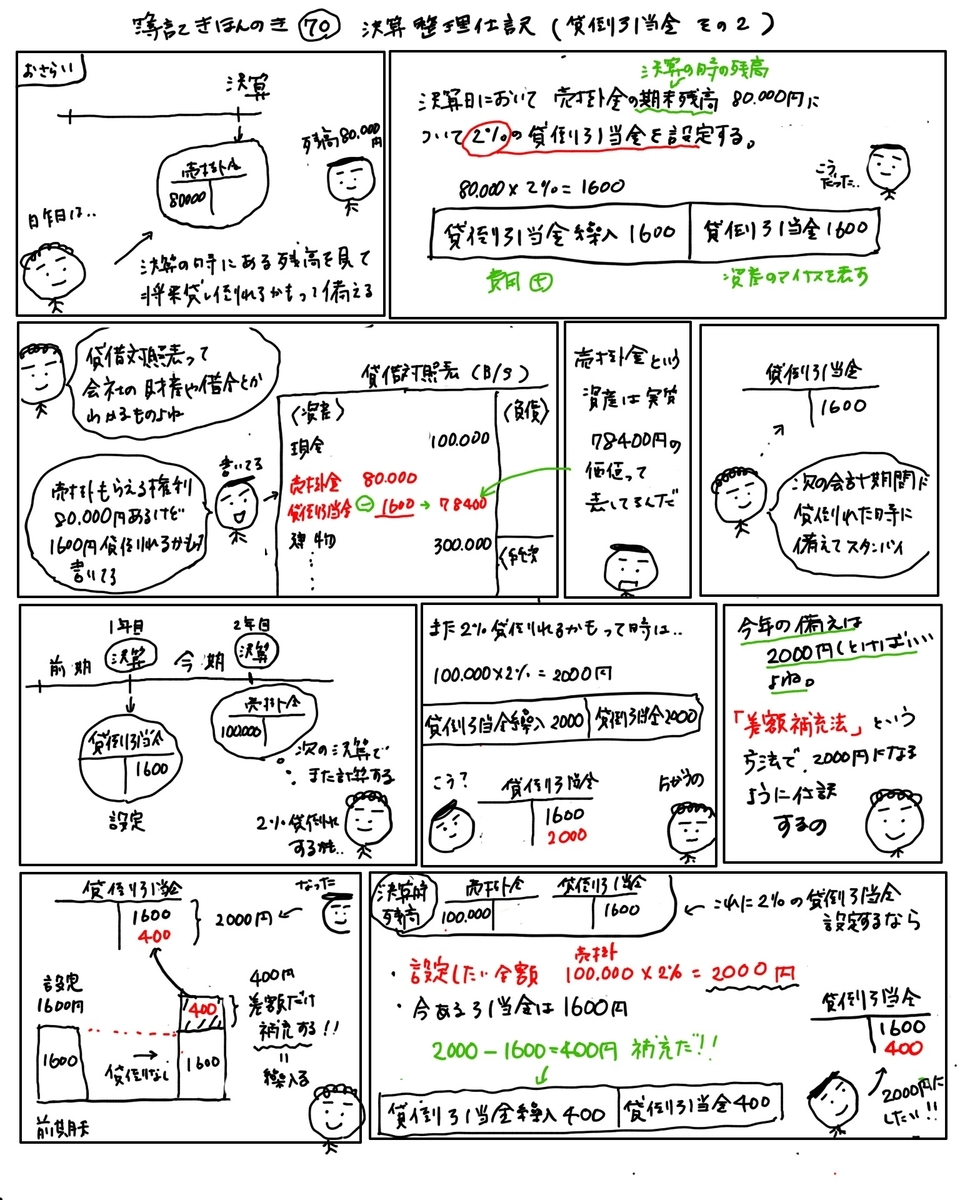 簿記きほんのき 70 決算整理仕訳(貸倒引当金 その2)
おさらい
決算
残高80.000円
売掛金
80000
昨日は..
決算の時にある残高を見て
将来貸し倒れるかもって備える
決算の時の残高
決算日において 売掛金の期末残高 80.000円に
ついて2%の貸倒引当金を設定する。
80.000×2%=1600
こう
だった..
貸倒引当金繰入 1600 貸倒引当金1600
費用 +
資産のマイナスを表す
貸借対照表って
会社の財産や借金とか
わかるものよね
書いてる
売掛もらえる権利
80.000円あるけど
1600円貸倒れるかもて
書いてる
貸借対照表(B/S)
〈資産〉
〈負債〉
現金 100.000
売掛金 80.000
貸倒引当金 − 1600 → 78400
建物 300.000
売掛金という
資産は実質
78400円の
価値って
表してるんだ
貸倒引当金
1600
次の会計期間に
貸倒れた時に
備えてスタンバイ
1年目
2年目
前期 決算 今期 決算
売掛金
100.000
貸倒引当金
1600
設定
次の決算で
また計算する
2%貸倒れ
するかも..
また2%貸倒れるかもって時は..
100.000×2%=2000円
貸倒引当金繰入2000 貸倒引当金2000
こう?
貸倒引当金
1600
2000
ちがうの
今年の備えは
2000円しとけばいい
よね。
「差額補充法」という
方法で、2000円になる
ように仕訳
するの
貸倒引当金
1600
400
2000円
なった
設定
1600円
1600
貸倒なし
400
1600
前期末
400円
差額だけ
補充する!!
=
繰入る
決算時
残高
売掛金
100.000
貸倒引当金
1600
← これに2%の貸倒引当金
設定するなら
・設定したい金額 売掛 100.000×2%=2000円
・今ある引当金は1600円
2000−1600=400円 補充だ!!
貸倒引当金繰入400 貸倒引当金400
貸倒引当金
1600
400
2000円に
したい!!